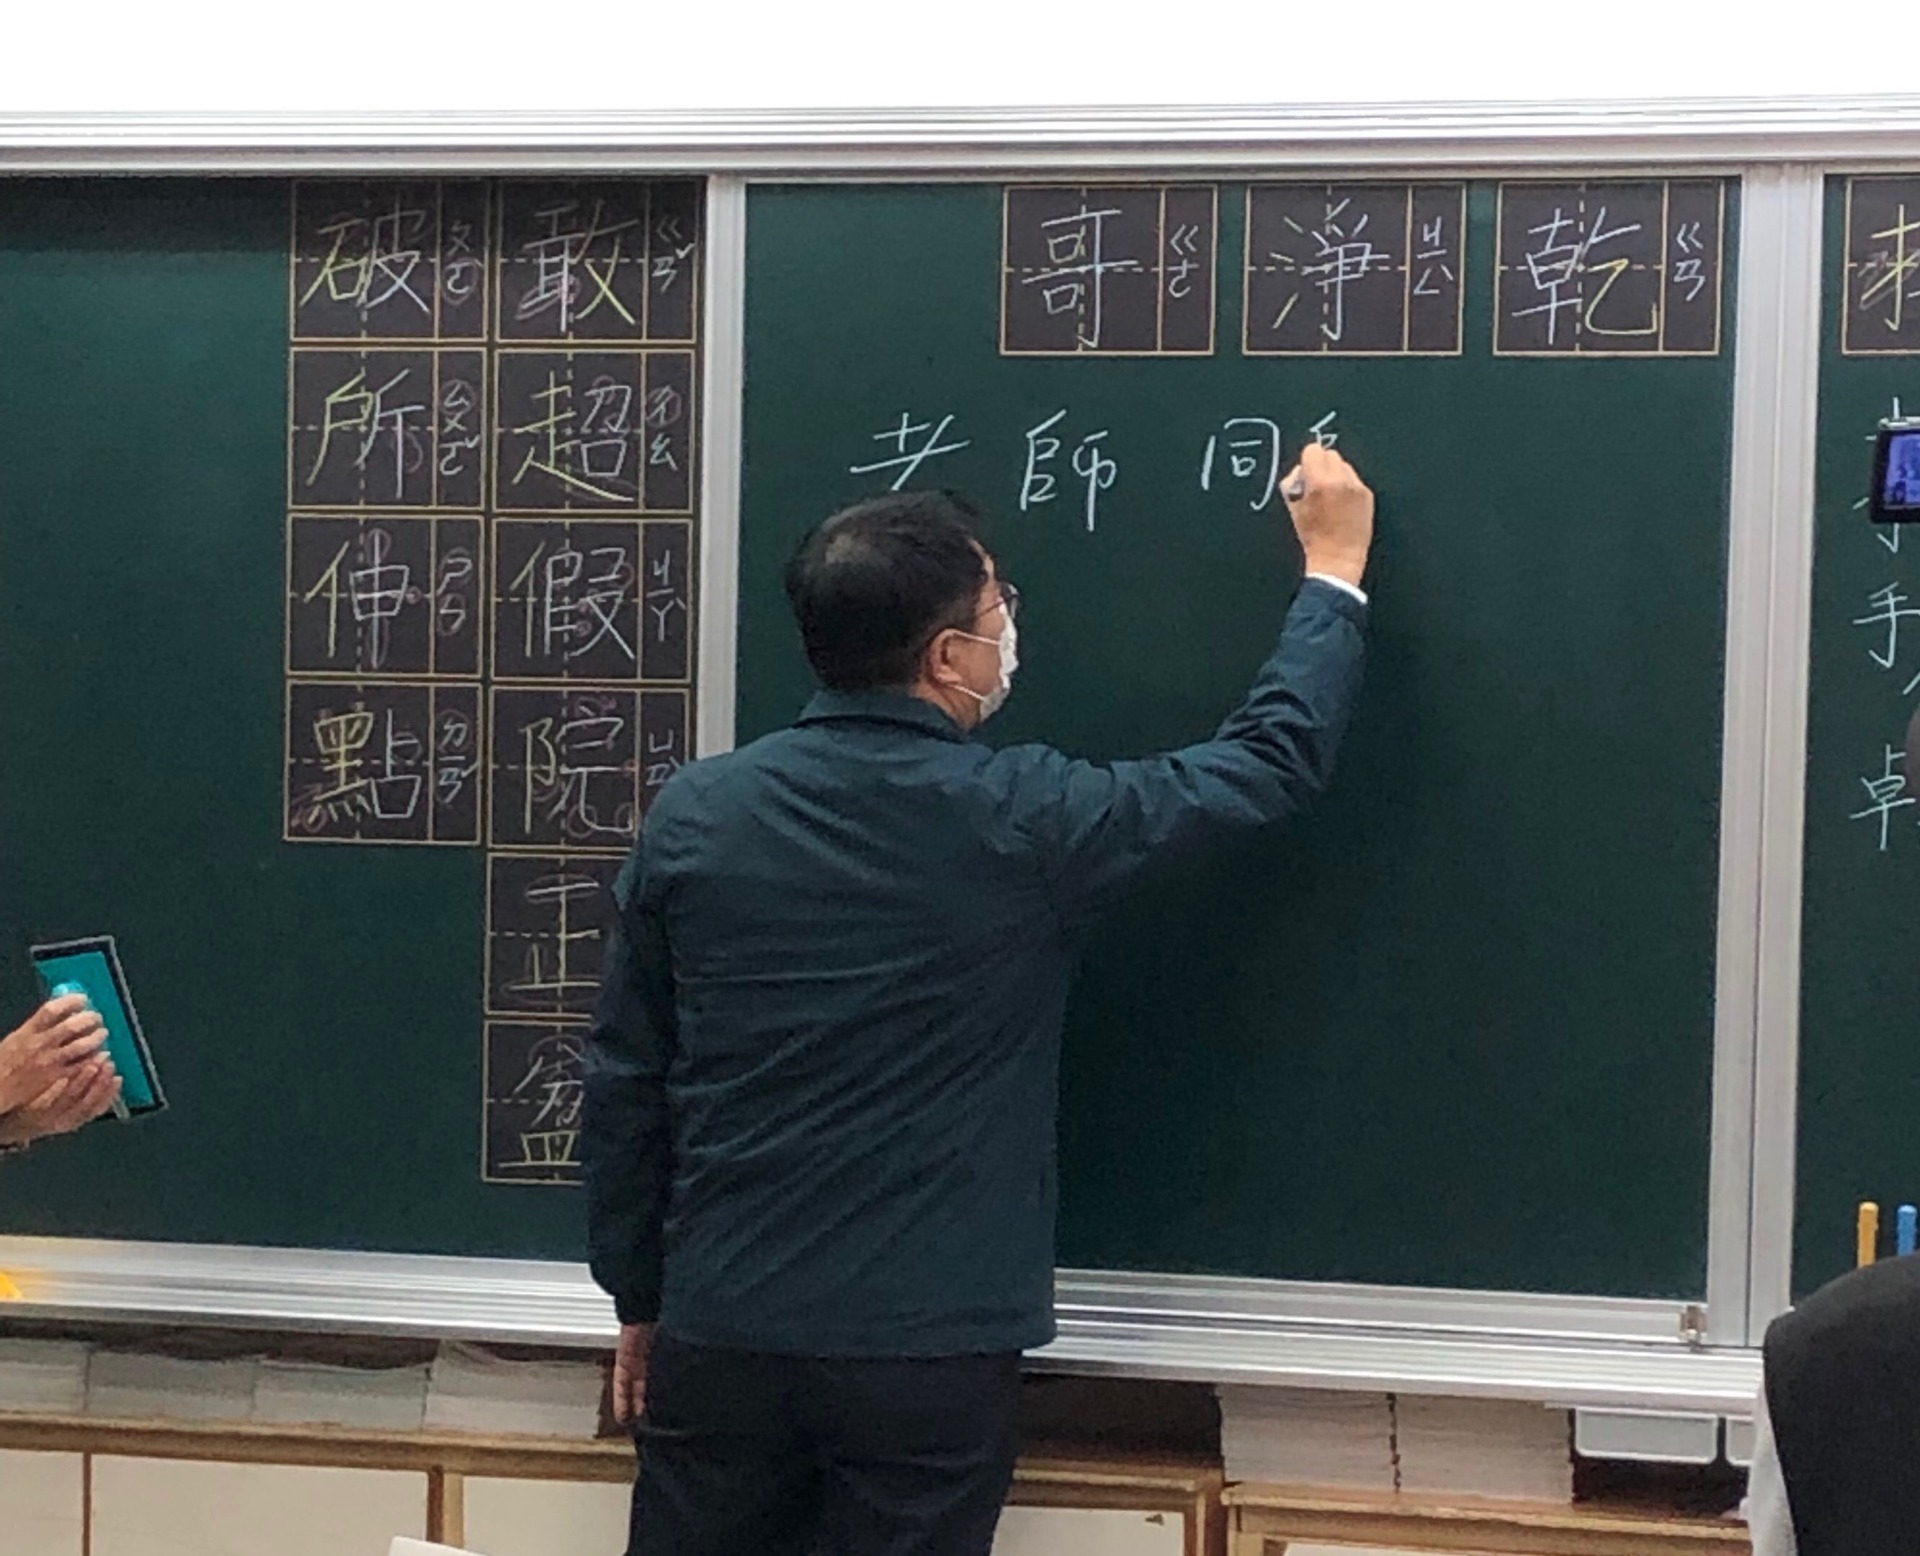 手
卓
乾 ㄍㄢ
淨 ㄐㄧㄥˋ
哥 ㄍㄜ
老 師 同
敢 ㄍㄢˇ
超 ㄔㄠ
假 ㄐㄧㄚˋ
院 ㄩㄢˋ
正
破 ㄆㄛˋ
所 ㄙㄨㄛˇ
伸 ㄕㄣ
點 ㄉㄧㄢˇ